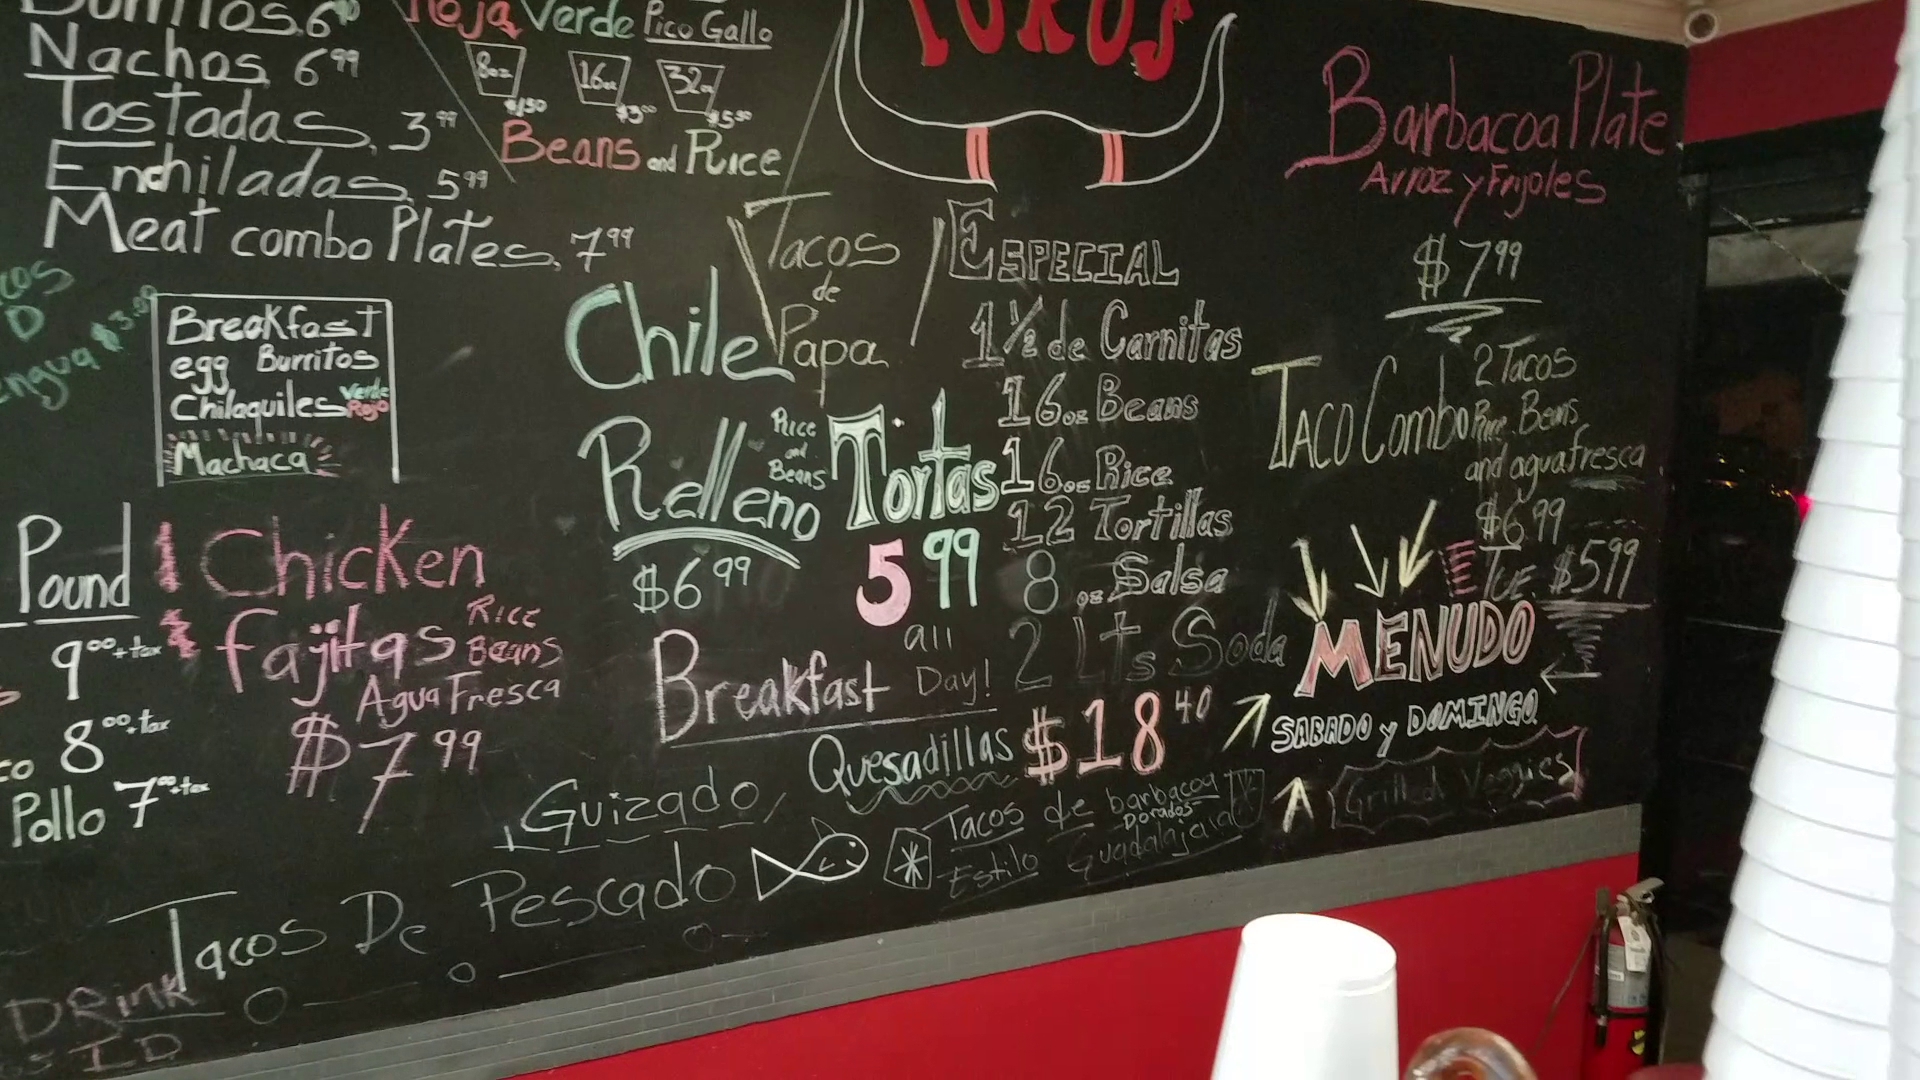 Burritos. 6
Nachos, 6 99
Tostadas, 3 99
Enchiladas, 5 99
Meat combo Plates, 7 99
Roja Verde Pico Gallo
8oz 16oz 32oz
$1.50 $3.00 $5.50
Beans and Rice
TOROS
Barbacoa Plate
Arroz y Frijoles
$7 99
D
$3.
Breakfast
egg Burritos
Chilaquiles Verde Rojo
Machaca
Tacos
de
Papa
Chile
Relleno
Rice
and
Beans
$6 99
Tortas
5 99
Especial
1 1/2 de Carnitas
16oz Beans
16oz Rice
12 Tortillas
8oz Salsa
2 Lts Soda
$18 40
Taco Combo
2 Tacos
Rice. Beans
and agua fresca
$6.99
TUE. $5 99
MENUDO
SABADO y DOMINGO
Grilled Veggies
Pound
9 00+tax
8 00+tax
Pollo 7 00+tax
Chicken
fajitas
Rice
Beans
Agua Fresca
$7 99
Breakfast all Day!
Guizado, Quesadillas
Tacos de barbacoa
Dorados
Estilo Guadalajara
Tacos De Pescado
DRink